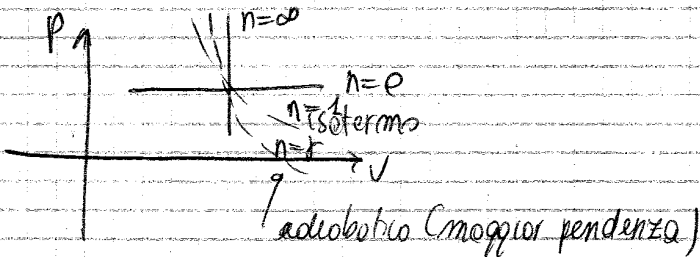 P
n=∞
n=0
n=1
isotermo
n=γ
V
adiabatico (maggior pendenza)